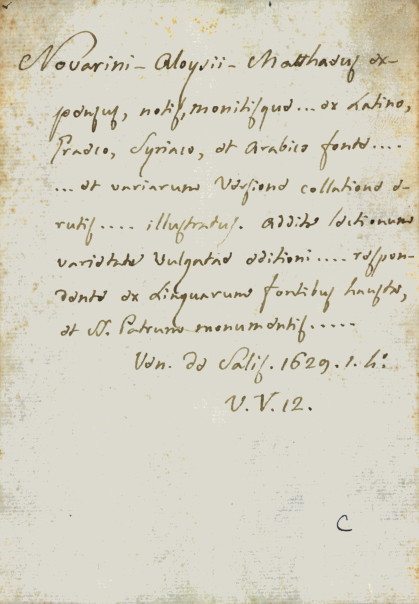 Novarini - Aloysii - Matthaeus ex-
pensus, notis, monitisque... ex Latino,
Graeco, Syriaco, et Arabico fonte....
... et variarum Versione collatione e-
rutis.... illustratus. Addita lectionum
varietate vulgatae editioni.... respon-
dente ex Linguarum fontibus hausta,
et SS. Patrum monumentis.....
Ven. de Salis. 1629. 1. h.º
V. V. 12.
C